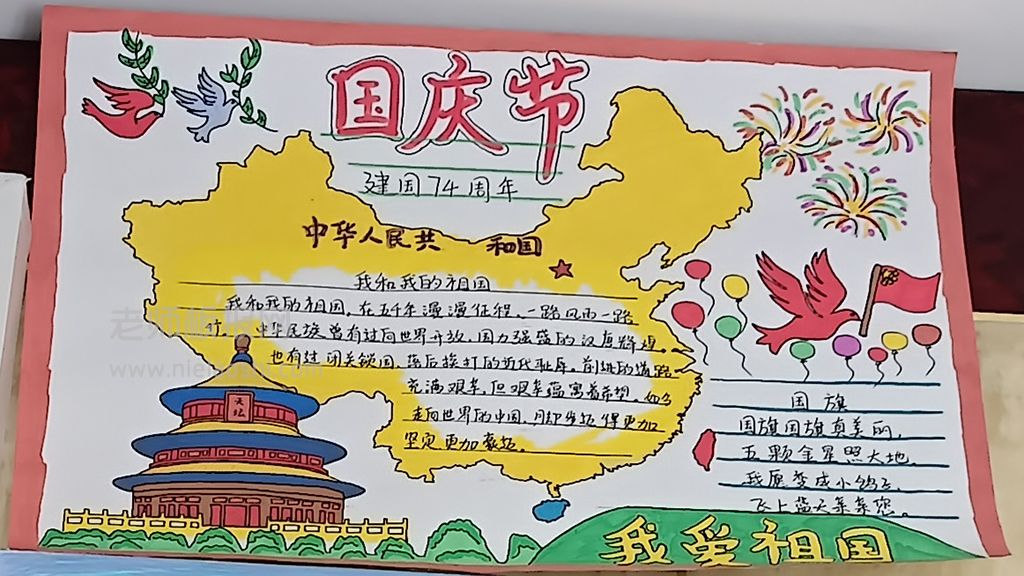 国庆节
建国74周年
中华人民共 和国
我和我的祖国
我和我的祖国,在五千年漫漫征程,一路风雨一路
行。中华民族曾有过向世界开放,国力强盛的汉唐辉煌,
也有过闭关锁国,落后挨打的近代耻辱。前进的道路
充满艰辛,但艰辛蕴寓着希望。如今
走向世界的中国,步伐得更加
坚定更加豪迈。
天坛
国旗
国旗国旗真美丽,
五颗金星照大地,
我愿变成小鸽子,
飞上蓝天亲亲您。
我爱祖国